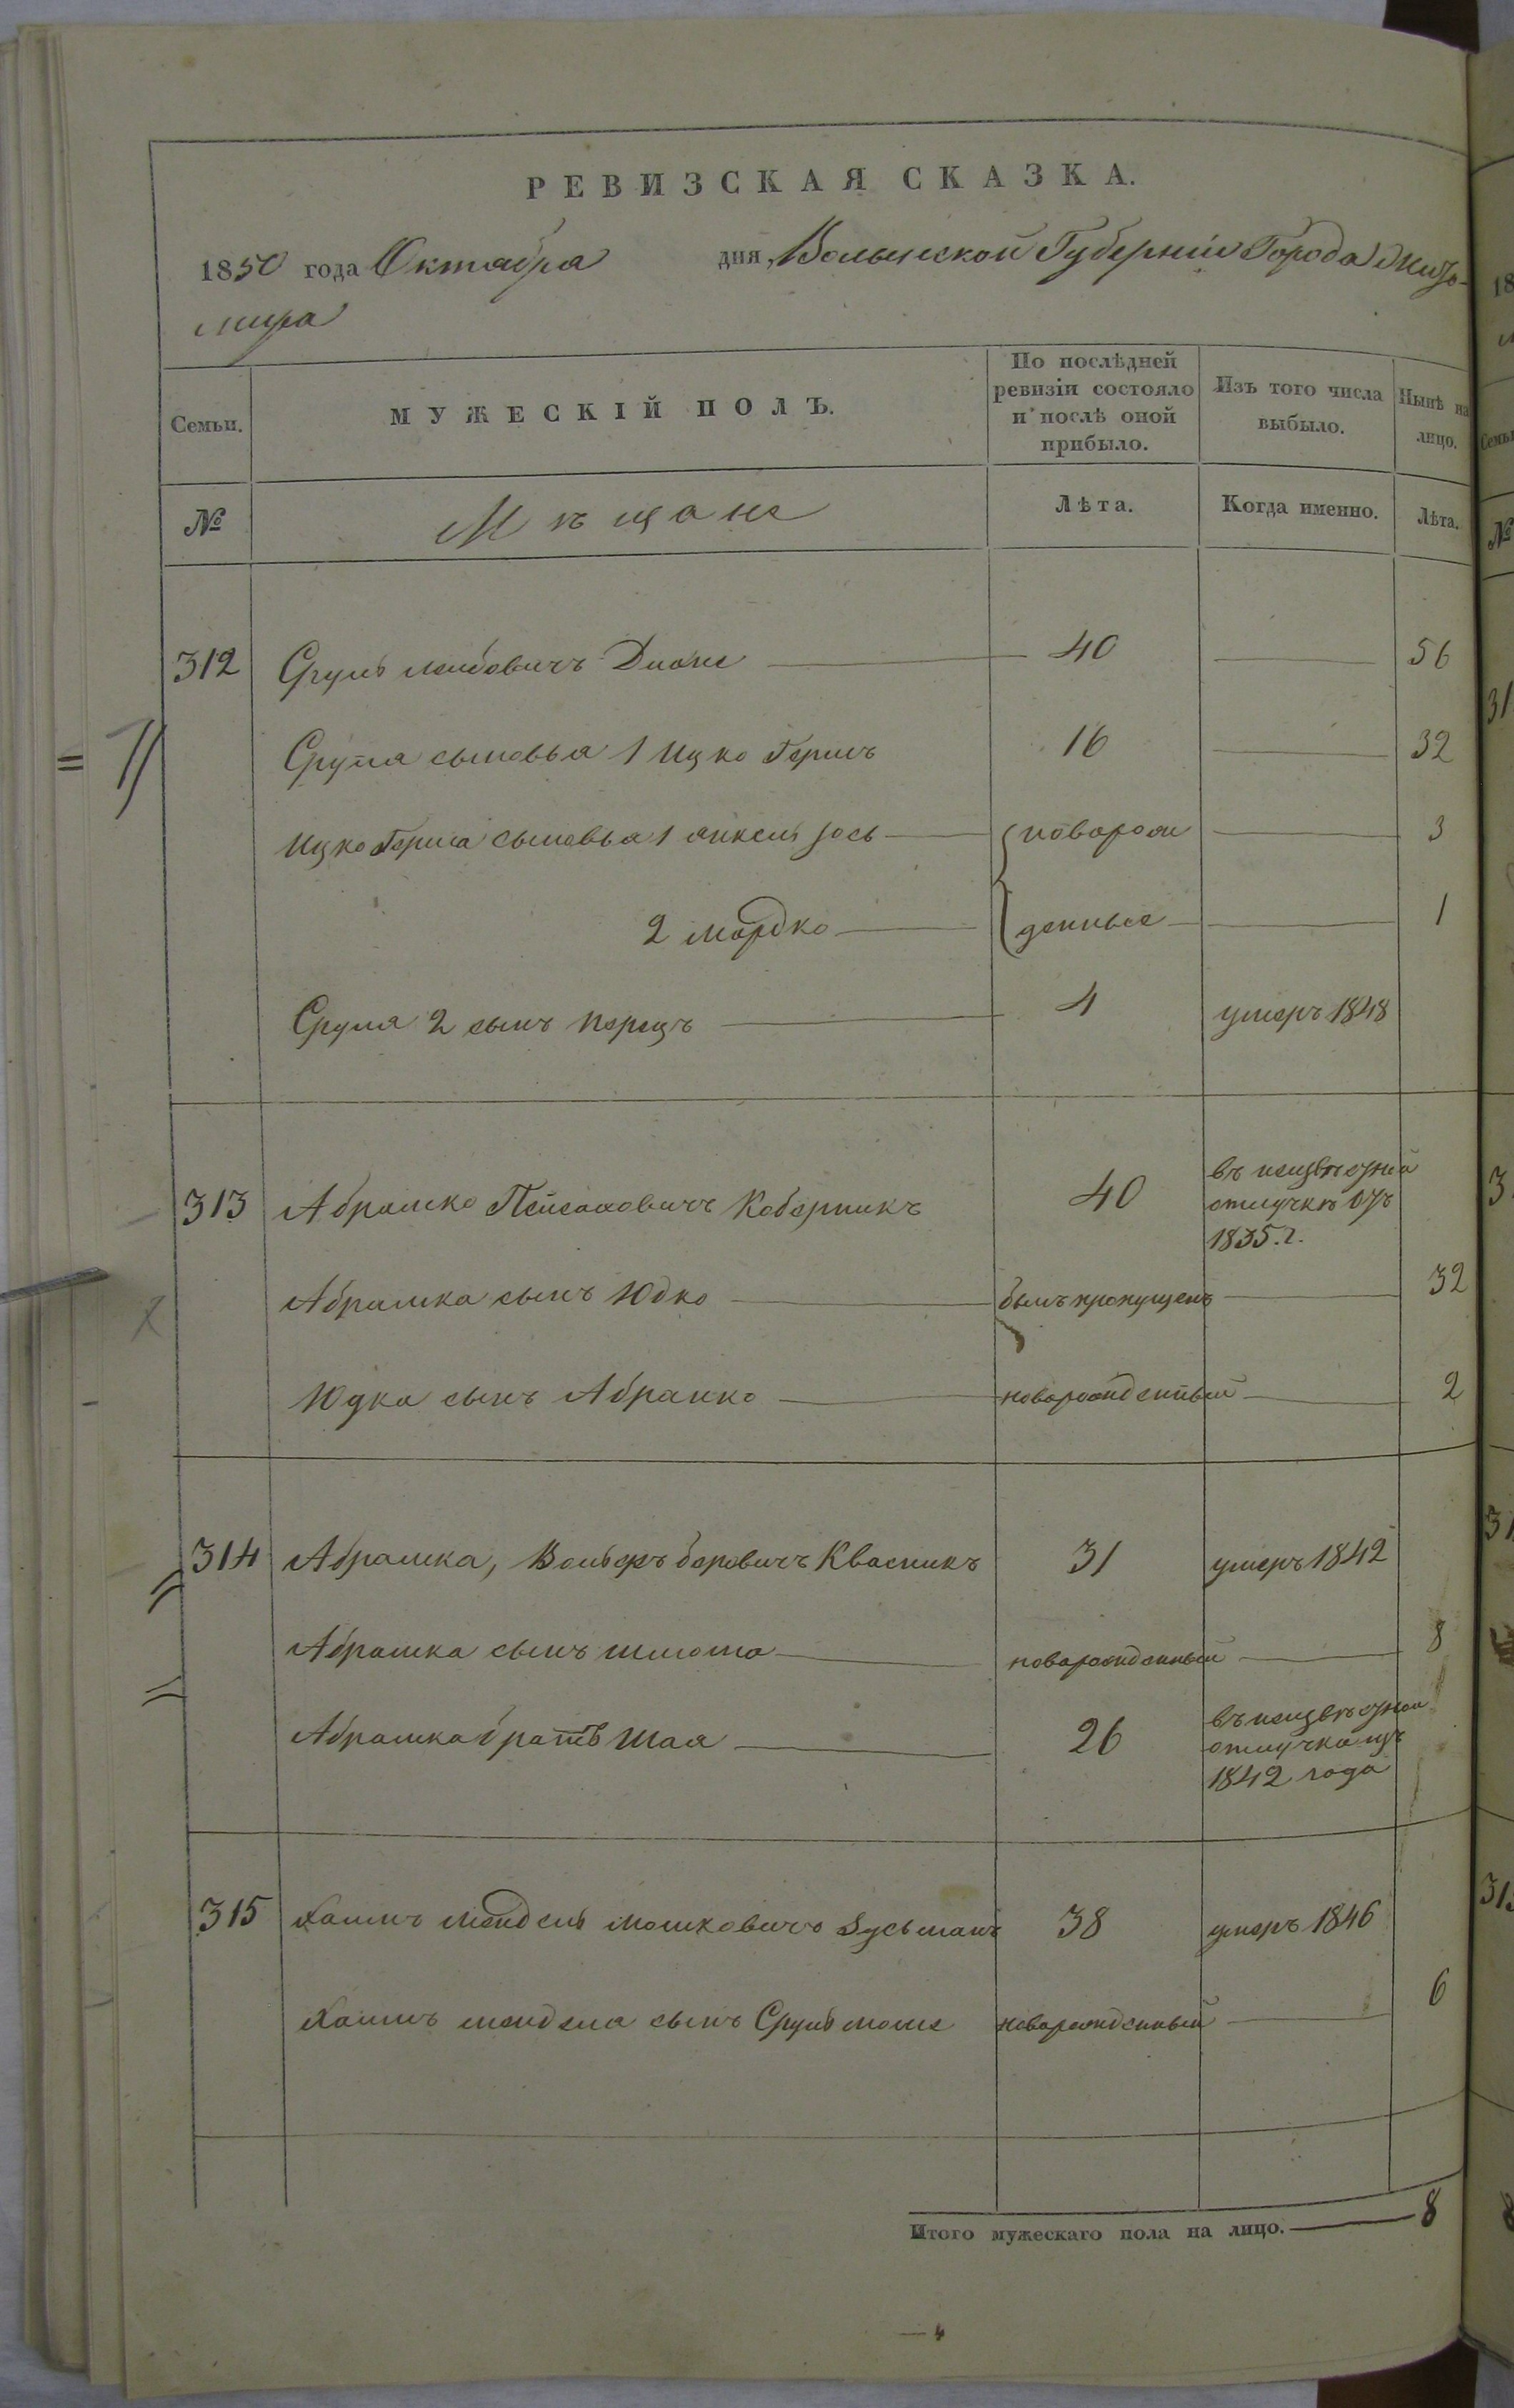 РЕВИЗСКАЯ СКАЗКА.
1850 года Октября дня, Волынской Губерніи Города Жито-
мира
Семьи. МУЖЕСКІЙ ПОЛЪ. По послѣдней ревизіи состояло и послѣ оной прибыло. Изъ того числа выбыло. Нынѣ на лицо.
№ Мѣщане Лѣта. Когда именно. Лѣта.
312 Сруль Лейбовичъ 40 56
Сруля сыновья 1 Ицко Гершъ 16 32
Ицко Герша сыновья 1 Янкель Іось новорож 3
2 Мордко денные 1
Сруля 2 сынъ Перецъ 4 умеръ 1848
313 Абрамко Пейсаховичъ Коберникъ 40 въ неизвѣстной
отлучкѣ отъ
1835 г.
Абрамка сынъ Юдко былъ пропущенъ 32
Юдка сынъ Абрамко новорожденный 2
314 Абрамка, Вольфъ Беровичъ Квасникъ 31 умеръ 1842
Абрамка сынъ Шлома новорожденный 8
Абрамка братъ Шая 26 въ неизвѣстной
отлучке изъ
1842 года
315 Хаимъ Мендель Мошковичъ Зусьманъ 38 умеръ 1846
Хаимъ Менделя сынъ Сруль Моше новорожденный 6
Итого мужескаго пола на лицо. 8